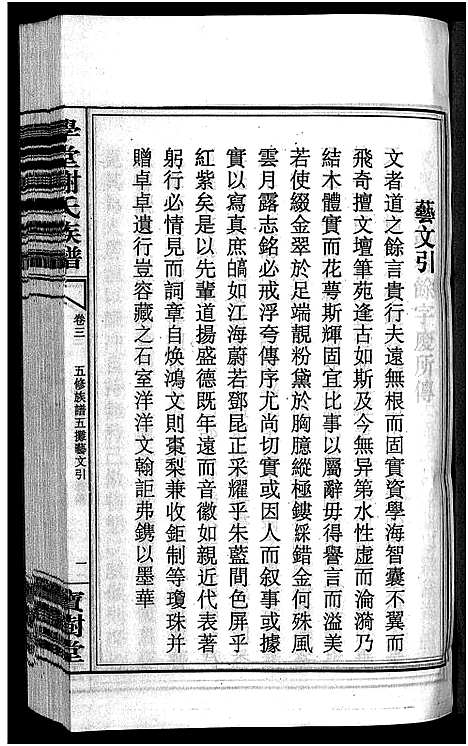 藝文引
文者道之餘言貴行夫遠無根而固實資學海智囊不翼而
飛奇擅文壇筆苑逢古如斯及今無异第水性虛而淪漪乃
結木體實而花萼斯輝固宜比事以屬辭毋得譽言而溢美
若使綴金翠於足端靚粉黛於胸臆縱極鏤綵錯金何殊風
雲月露志銘必戒浮夸傳序尤尚切實或因人而叙事或據
實以寫真庶皜如江海蔚若鄧昆正采耀乎朱藍間色屏乎
紅紫矣是以先輩道揚盛德既年遠而音徽如親近代表著
躬行必情見而詞章自煥鴻文則棗梨兼收鉅制等瓊珠并
贈卓卓遺行豈容藏之石室洋洋文翰詎弗鐫以墨華
學堂謝氏族譜
卷三
五修族譜五攤藝文引
一
寶樹堂